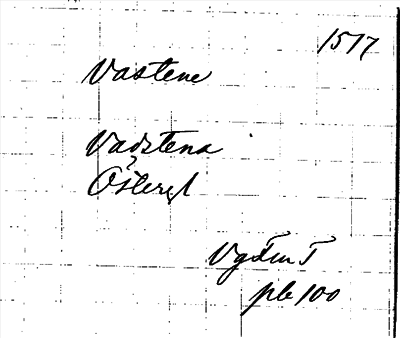 1517
Vastene
Vadstena
?
Östergl
VgFmT
pb 100